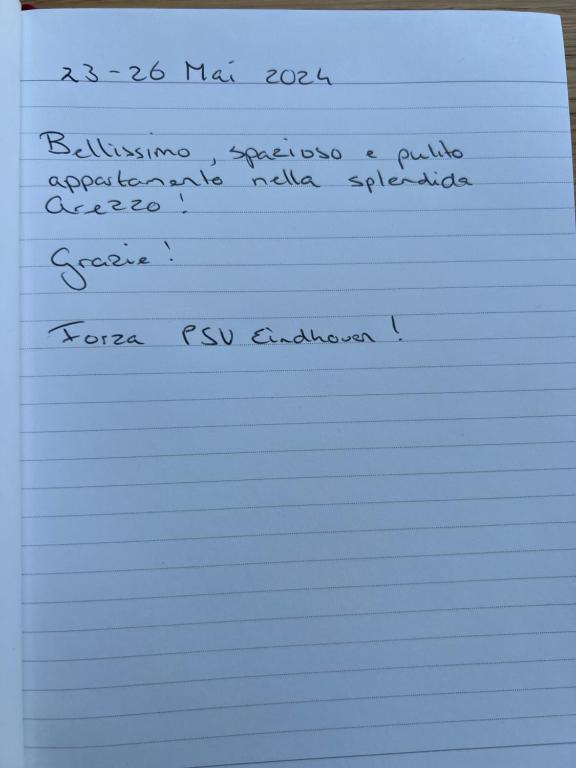 23-26 Mai 2024
Bellissimo, spazioso e pulito
appartamento nella splendida
Arezzo!
Grazie!
Forza PSV Eindhoven!